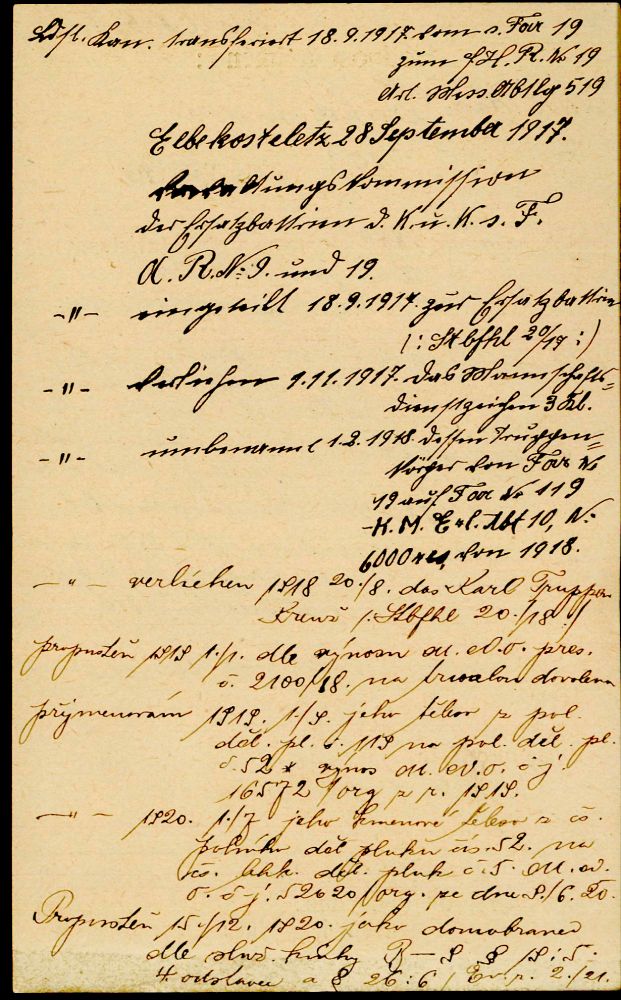 Ldst. Kan. transferiert 18.9.1917 vom s. Far 19
zum f.H.R. № 19
Art. Mess. Abtlg 519
Elbekosteletz 28 September 1917.
Verwaltungskommission
der Ersatzbattrien d. K.u.K. s. F.
A. R. №: 9. und 19.
-"- eingeteilt 18.9.1917. zur Ersatzbattrie
(: Stbfhl 20/17 :)
-"- Verliehen 1.11.1917. das Mannschafts=
dienstzeichen 3 Kl.
-"- umbenannt 1.2.1918. dessen Truppen=
körper von Far №
19 auf Far № 119
K.M. Erl. Abt 10, N:
6000 von 1918.
-"- verliehen 1918 20./8. das Karl Truppen
Kreuz /: Stbfhl 20./18 :/
propuštěn 1919 1./1. dle výnosu M. N. o. pres.
č. 2100/18. na trvalou dovolenou
přejmenován 1919. 1./9. jeho těleso z pol.
děl. pl. č. 119 na pol. děl. pl.
č. 52 výnos M. N. o. č j.
16572/org z r. 1919.
-"- 1920. 1./7 jeho kmenové těleso z čs.
polního děl pluku čís. 52. na
čs. lehk. děl. pluk č. 5. M. N.
o. č j. 52020/org. ze dne 9./6. 20.
Propuštěn 15./12. 1920. jako domobranec
dle služ. knihy B - 9 § 19 : 5 :
4. odstavec a § 26 : 6 / Ev. p. 2./21.